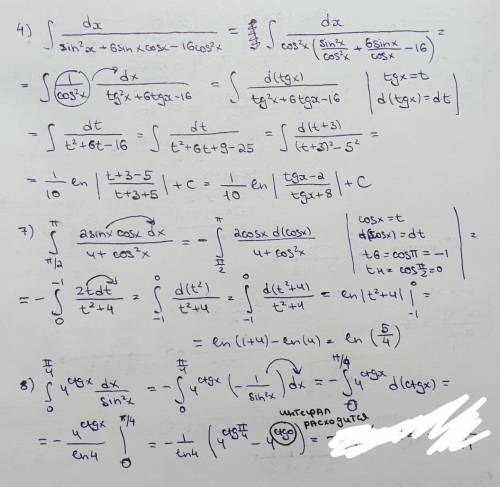 4) ∫ dx / (sin²x + 6sinx cosx − 16cos²x) = ∫ dx / (cos²x (sin²x/cos²x + 6sinx/cosx − 16)) =
= ∫ 1/cos²x dx / (tg²x + 6tgx − 16) = ∫ d(tgx) / (tg²x + 6tgx − 16) | tgx = t d(tgx) = dt |
= ∫ dt / (t² + 6t − 16) = ∫ dt / (t² + 6t + 9 − 25) = ∫ d(t+3) / ((t+3)² − 5²) =
= 1/10 ln |(t+3−5)/(t+3+5)| + C = 1/10 ln |(tgx−2)/(tgx+8)| + C
7) ∫_{π/2}^{π} 2sinx cosx dx / (4 + cos²x) = − ∫_{π/2}^{π} 2cosx d(cosx) / (4 + cos²x) | cosx = t d(cosx) = dt tв = cosπ = −1 tн = cos π/2 = 0 | =
= − ∫_{0}^{−1} 2t dt / (t² + 4) = ∫_{−1}^{0} d(t²) / (t² + 4) = ∫_{−1}^{0} d(t²+4) / (t² + 4) = ln|t² + 4| |_{−1}^{0} =
= ln(1+4) − ln(4) = ln (5/4)
8) ∫_{0}^{π/4} 4^{ctgx} dx / sin²x = − ∫_{0}^{π/4} 4^{ctgx} (− 1/sin²x) dx = − ∫_{0}^{π/4} 4^{ctgx} d(ctgx) =
= − 4^{ctgx} / ln4 |_{0}^{π/4} = − 1/ln4 (4^{ctg π/4} − 4^{ctg0}) = −
интеграл расходится